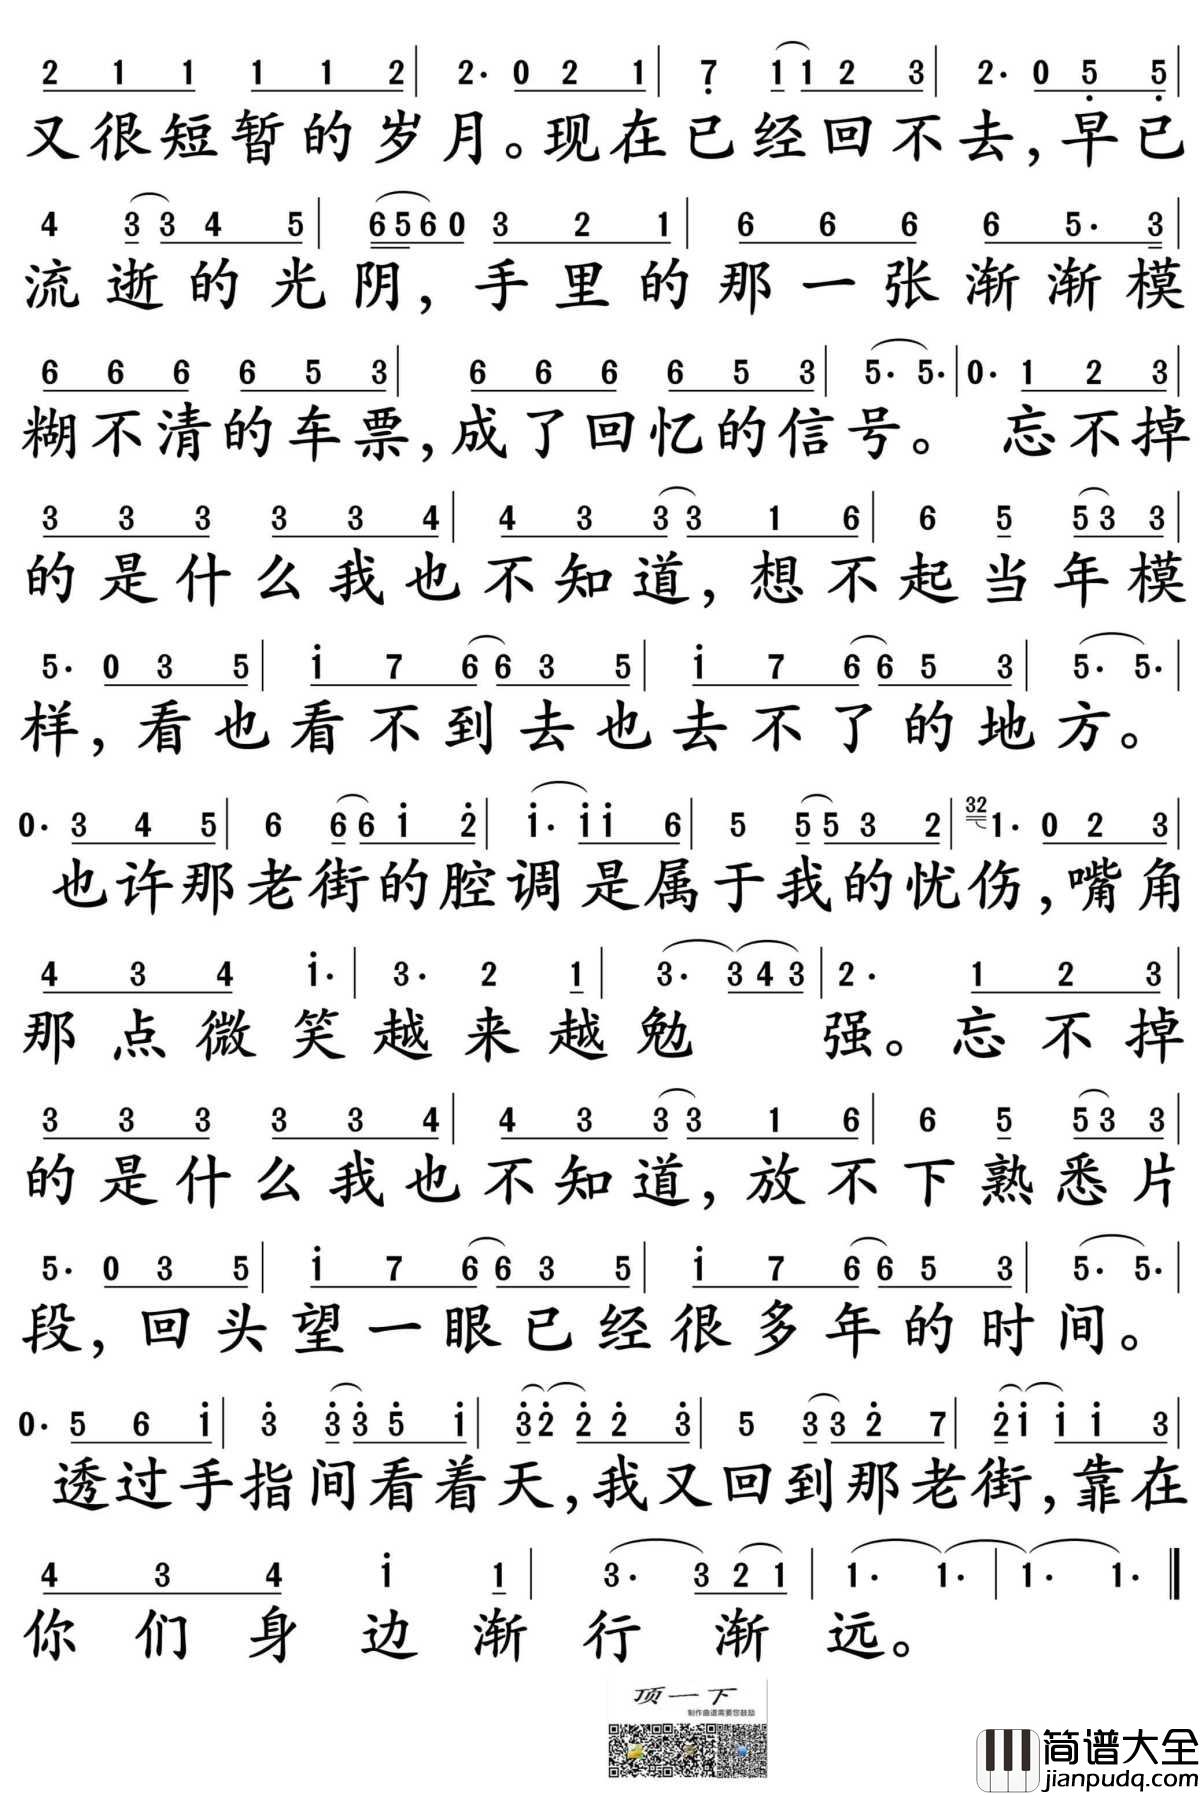 2 1 1 1 1 2 | 2· 0 2 1 | 7 1 1 2 3 | 2· 0 5 5 |
又很短暂的岁月。现在已经回不去,早已
4 3 3 4 5 | 6 5 6 0 3 2 1 | 6 6 6 6 5· 3 |
流逝的光阴,手里的那一张渐渐模
6 6 6 6 5 3 | 6 6 6 6 5 3 | 5· 5· | 0· 1 2 3 |
糊不清的车票,成了回忆的信号。 忘不掉
3 3 3 3 3 4 | 4 3 3 3 1 6 | 6 5 5 3 3 |
的是什么我也不知道,想不起当年模
5· 0 3 5 | i 7 6 6 3 5 | i 7 6 6 5 3 | 5· 5· |
样,看也看不到去也去不了的地方。
0· 3 4 5 | 6 6 6 i 2 | i· i i 6 | 5 5 5 3 2 | 32 1· 0 2 3 |
也许那老街的腔调是属于我的忧伤,嘴角
4 3 4 i· | 3· 2 1 | 3· 3 4 3 | 2· 1 2 3 |
那点微笑越来越勉 强。忘不掉
3 3 3 3 3 4 | 4 3 3 3 1 6 | 6 5 5 3 3 |
的是什么我也不知道,放不下熟悉片
5· 0 3 5 | i 7 6 6 3 5 | i 7 6 6 5 3 | 5· 5· |
段,回头望一眼已经很多年的时间。
0· 5 6 i | 3 3 3 5 i | 3 2 2 2 3 | 5 3 3 2 7 | 2 i i i 3 |
透过手指间看着天,我又回到那老街,靠在
4 3 4 i 1 | 3· 3 2 1 | 1· 1· | 1· 1· ‖
你们身边渐行渐远。
顶一下
制作曲谱需要您鼓励
简谱大全
jianpudq.com